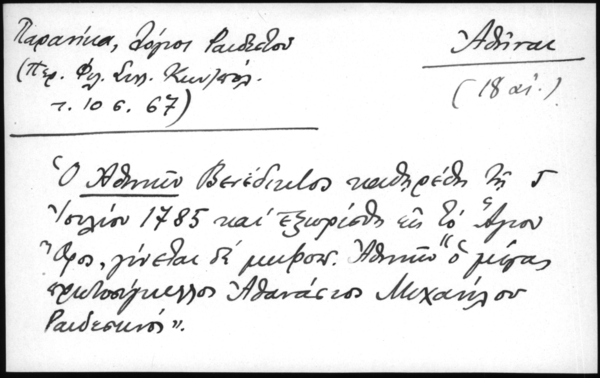 Παρανίκα, Λόγιοι Ραιδεστοῦ
(Περ. Φιλ. Συλ. Κων/πόλ.
τ. 10 σ. 67)
Ἀθῆναι
(18 αἰ.)
Ὁ Ἀθηνῶν Βενέδικτος καθηρέθη τῇ 5
Ἰουλίου 1785 καί ἐξωρίσθη εἰς τό Ἅγιον
Ὄρος, γίνεται δέ μητροπ. Ἀθηνῶν "ὁ μέγας
πρωτοσύγκελλος Ἀθανάσιος Μιχαήλου
Ραιδεστινός".